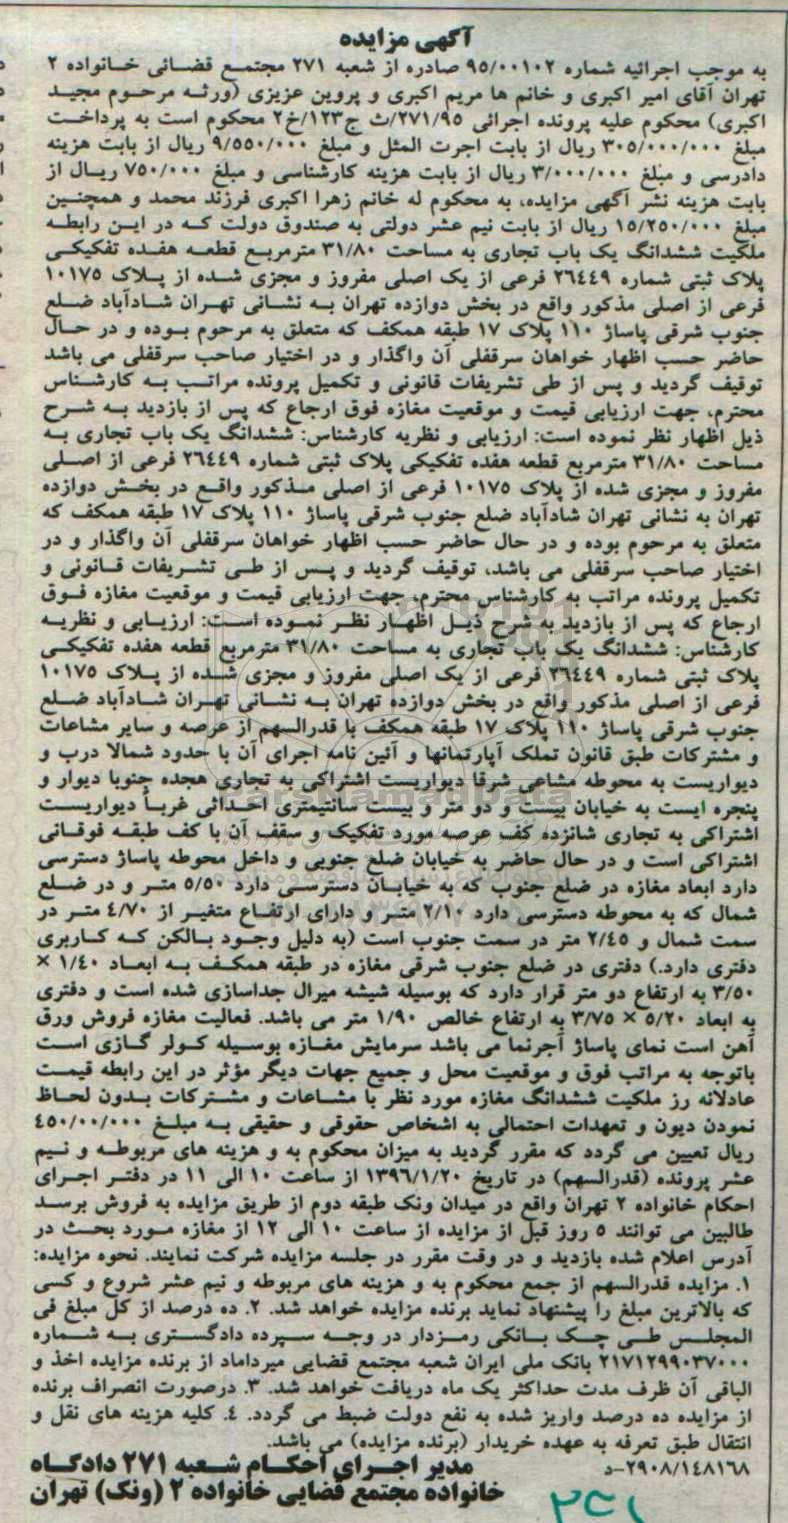 آگهی مزایده
به موجب اجرائیه شماره ۹۵/۰۰۱۰۲ صادره از شعبه ۲۷۱ مجتمع قضائی خانواده ۲
تهران آقای امیر اکبری و خانم ها مریم اکبری و پروین عزیزی (ورثه مرحوم مجید
اکبری) محکوم علیه پرونده اجرائی ۲۷۱/۹۵/ث ج۱۲۳/خ۲ محکوم است به پرداخت
مبلغ ۳۰۵/۰۰۰/۰۰۰ ریال از بابت اجرت المثل و مبلغ ۹/۵۵۰/۰۰۰ ریال از بابت هزینه
دادرسی و مبلغ ۳/۰۰۰/۰۰۰ ریال از بابت هزینه کارشناسی و مبلغ ۷۵۰/۰۰۰ ریال از
بابت هزینه نشر آگهی مزایده، به محکوم له خانم زهرا اکبری فرزند محمد و همچنین
مبلغ ۱۵/۲۵۰/۰۰۰ ریال از بابت نیم عشر دولتی به صندوق دولت که در این رابطه
ملگیت ششدانگ یک باب تجاری به مساحت ۳۱/۸۰ مترمربع قطعه هفده تفکیکی
پلاک ثبتی شماره ۲۶٤٤۹ فرعی از یک اصلی مفروز و مجزی شده از پلاک ۱۰۱۷۵
فرعی از اصلی مذکور واقع در بخش دوازده تهران به نشانی تهران شادآباد ضلع
جنوب شرقی پاساژ ۱۱۰ پلاک ۱۷ طبقه همکف که متعلق به مرحوم بوده و در حال
حاضر حسب اظهار خواهان سرقفلی آن واگذار و در اختیار صاحب سرقفلی می باشد
توقیف گردید و پس از طی تشریفات قانونی و تکمیل پرونده مراتب به کارشناس
محترم، جهت ارزیابی قیمت و موقعیت مغازه فوق ارجاع که پس از بازدید به شرح
ذیل اظهار نظر نموده است: ارزیابی و نظریه کارشناس: ششدانگ یک باب تجاری به
مساحت ۳۱/۸۰ مترمربع قطعه هفده تفکیکی پلاک ثبتی شماره ۲۶٤٤۹ فرعی از اصلی
مفروز و مجزی شده از پلاک ۱۰۱۷۵ فرعی از اصلی مذکور واقع در بخش دوازده
تهران به نشانی تهران شادآباد ضلع جنوب شرقی پاساژ ۱۱۰ پلاک ۱۷ طبقه همکف که
متعلق به مرحوم بوده و در حال حاضر حسب اظهار خواهان سرقفلی آن واگذار و در
اختیار صاحب سرقفلی می باشد، توقیف گردید و پس از طی تشریفات قانونی و
تکمیل پرونده مراتب به کارشناس محترم، جهت ارزیابی قیمت و موقعیت مغازه فوق
ارجاع که پس از بازدید به شرح ذیل اظهار نظر نموده است: ارزیابی و نظریه
کارشناس: ششدانگ یک باب تجاری به مساحت ۳۱/۸۰ مترمربع قطعه هفده تفکیکی
پلاک ثبتی شماره ۲۶٤٤۹ فرعی از یک اصلی مفروز و مجزی شده از پلاک ۱۰۱۷۵
فرعی از اصلی مذکور واقع در بخش دوازده تهران به نشانی تهران شادآباد ضلع
جنوب شرقی پاساژ ۱۱۰ پلاک ۱۷ طبقه همکف با قدرالسهم از عرصه و سایر مشاعات
و مشترکات طبق قانون تملک آپارتمانها و آئین نامه اجرای آن با حدود شمالا درب و
دیواریست به محوطه مشاعی شرقا دیواریست اشتراکی به تجاری هجده جنوبا دیوار و
پنجره ایست به خیابان بیست و دو متر و بیست سانتیمتری احداثی غرباً دیواریست
اشتراکی به تجاری شانزده کف عرصه مورد تفکیک و سقف آن با کف طبقه فوقانی
اشتراکی است و در حال حاضر به خیابان ضلع جنوبی و داخل محوطه پاساژ دسترسی
دارد ابعاد مغازه در ضلع جنوب که به خیابان دسترسی دارد ۵/۵۰ متر و در ضلع
شمال که به محوطه دسترسی دارد ۲/۱۰ متر و دارای ارتفاع متغیر از ٤/۷۰ متر در
سمت شمال و ۲/٤۵ متر در سمت جنوب است (به دلیل وجود بالکن که کاربری
دفتری دارد.) دفتری در ضلع جنوب شرقی مغازه در طبقه همکف به ابعاد ۱/٤۰ ×
۳/۵۰ به ارتفاع دو متر قرار دارد که بوسیله شیشه میرال جداسازی شده است و دفتری
به ابعاد ۵/۲۰ × ۳/۷۵ به ارتفاع خالص ۱/۹۰ متر می باشد. فعالیت مغازه فروش ورق
آهن است نمای پاساژ آجرنما می باشد سرمایش مغازه بوسیله کولر گازی است
باتوجه به مراتب فوق و موقعیت محل و جمیع جهات دیگر مؤثر در این رابطه قیمت
عادلانه رز ملکیت ششدانگ مغازه مورد نظر با مشاعات و مشترکات بدون لحاظ
نمودن دیون و تعهدات احتمالی به اشخاص حقوقی و حقیقی به مبلغ ٤۵۰/۰۰/۰۰۰
ریال تعیین می گردد که مقرر گردید به میزان محکوم به و هزینه های مربوطه و نیم
عشر پرونده (قدرالسهم) در تاریخ ۱۳۹۶/۱/۲۰ از ساعت ۱۰ الی ۱۱ در دفتر اجرای
احکام خانواده ۲ تهران واقع در میدان ونک طبقه دوم از طریق مزایده به فروش برسد
طالبین می توانند ۵ روز قبل از مزایده از ساعت ۱۰ الی ۱۲ از مغازه مورد بحث در
آدرس اعلام شده بازدید و در وقت مقرر در جلسه مزایده شرکت نمایند. نحوه مزایده:
۱. مزایده قدرالسهم از جمع محکوم به و هزینه های مربوطه و نیم عشر شروع و کسی
که بالاترین مبلغ را پیشنهاد نماید برنده مزایده خواهد شد. ۲. ده درصد از کل مبلغ فی
المجلس طی چک بانکی رمزدار در وجه سپرده دادگستری به شماره
۲۱۷۱۲۹۹۰۳۷۰۰۰ بانک ملی ایران شعبه مجتمع قضایی میرداماد از برنده مزایده اخذ و
الباقی آن ظرف مدت حداکثر یک ماه دریافت خواهد شد. ۳. درصورت انصراف برنده
از مزایده ده درصد واریز شده به نفع دولت ضبط می گردد. ٤. کلیه هزینه های نقل و
انتقال طبق تعرفه به عهده خریدار (برنده مزایده) می باشد.
مدیر اجرای احکام شعبه ۲۷۱ دادگاه
خانواده مجتمع قضایی خانواده ۲ (ونک) تهران
۲۹۰۸/۱٤۸۱۶۸-د